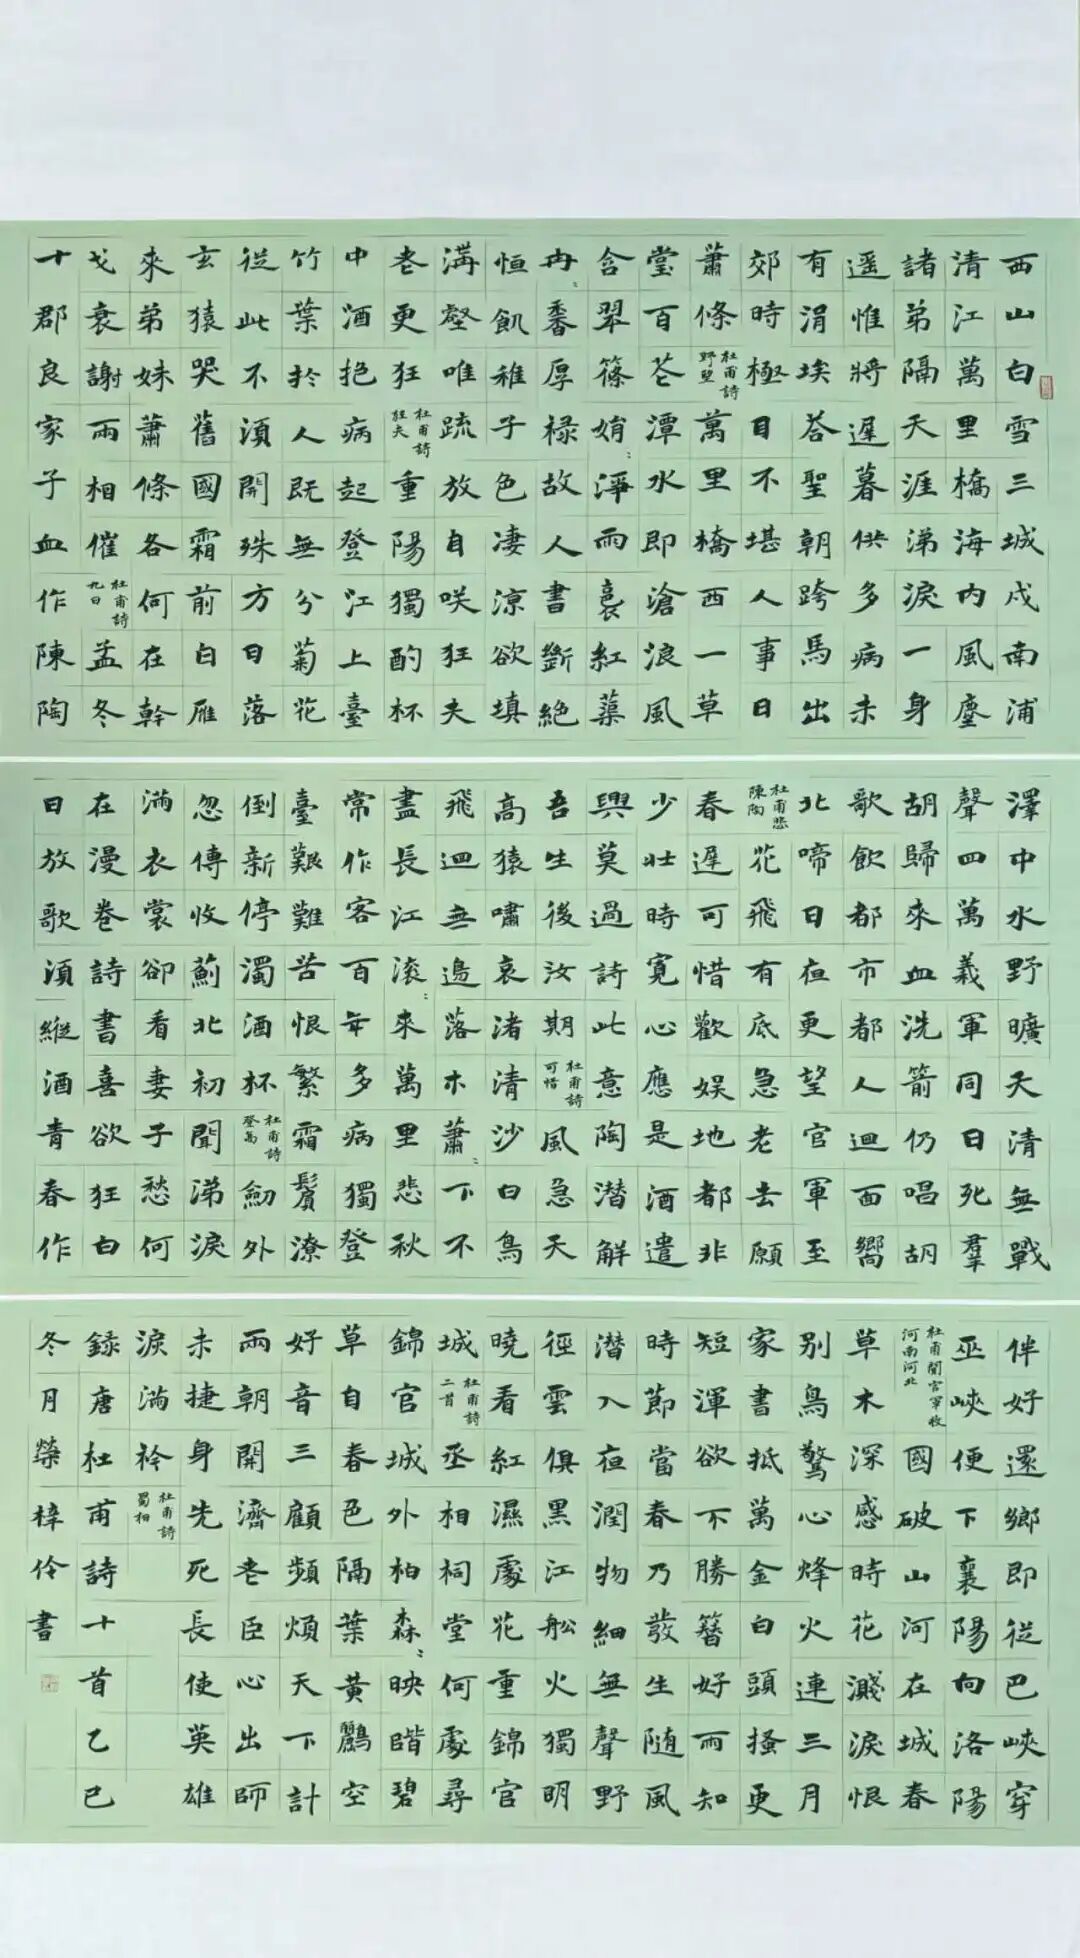 西山白雪三城戍南浦
清江萬里橋海內風塵
諸弟隔天涯涕淚一身
遥惟將遲暮供多病未
有涓埃荅聖朝跨馬出
郊時極目不堪人事日
蕭條杜甫詩野望萬里橋西一草
堂百花潭水即滄浪風
含翠篠娟〻淨雨裛紅蕖
冉〻香厚祿故人書斷絕
恒飢稚子色凄涼欲填
溝壑唯疏放自咲狂夫
老更狂杜甫詩狂夫重陽獨酌杯
中酒抱病起登江上臺
竹葉扵人既無分菊花
從此不須開殊方日落
玄猿哭舊國霜前白雁
來弟妹蕭條各何在幹
戈衰謝兩相催杜甫詩九日孟冬
十郡良家子血作陳陶
澤中水野曠天清無戰
聲四萬義軍同日死羣
胡歸來血洗箭仍唱胡
歌飲都市都人迴面嚮
北啼日夜更望官軍至
杜甫悲陳陶花飛有底急老去願
春遲可惜歡娛地都非
少壯時寬心應是酒遣
興莫過詩此意陶潛解
吾生後汝期杜甫詩可惜風急天
高猿嘯哀渚清沙白鳥
飛迴無邊落木蕭〻下不
盡長江滾〻來萬里悲秋
常作客百年多病獨登
臺艱難苦恨繁霜鬢潦
倒新停濁酒杯杜甫詩登高劒外
忽傳收薊北初聞涕淚
滿衣裳卻看妻子愁何
在漫卷詩書喜欲狂白
日放歌須縱酒青春作
伴好還鄉即從巴峽穿
巫峽便下襄陽向洛陽
杜甫聞官軍收河南河北國破山河在城春
草木深感時花濺淚恨
別鳥驚心烽火連三月
家書抵萬金白頭搔更
短渾欲不勝簪好雨知
時節當春乃發生随風
潛入夜潤物細無聲野
徑雲俱黑江船火獨明
曉看紅濕處花重錦官
城杜甫詩二首丞相祠堂何處尋
錦官城外柏森〻映階碧
草自春色隔葉黃鸝空
好音三顧頻煩天下計
兩朝開濟老臣心出師
未捷身先死長使英雄
淚滿衿杜甫詩蜀相
錄唐杜甫詩十首乙巳
冬月榮梓伶書